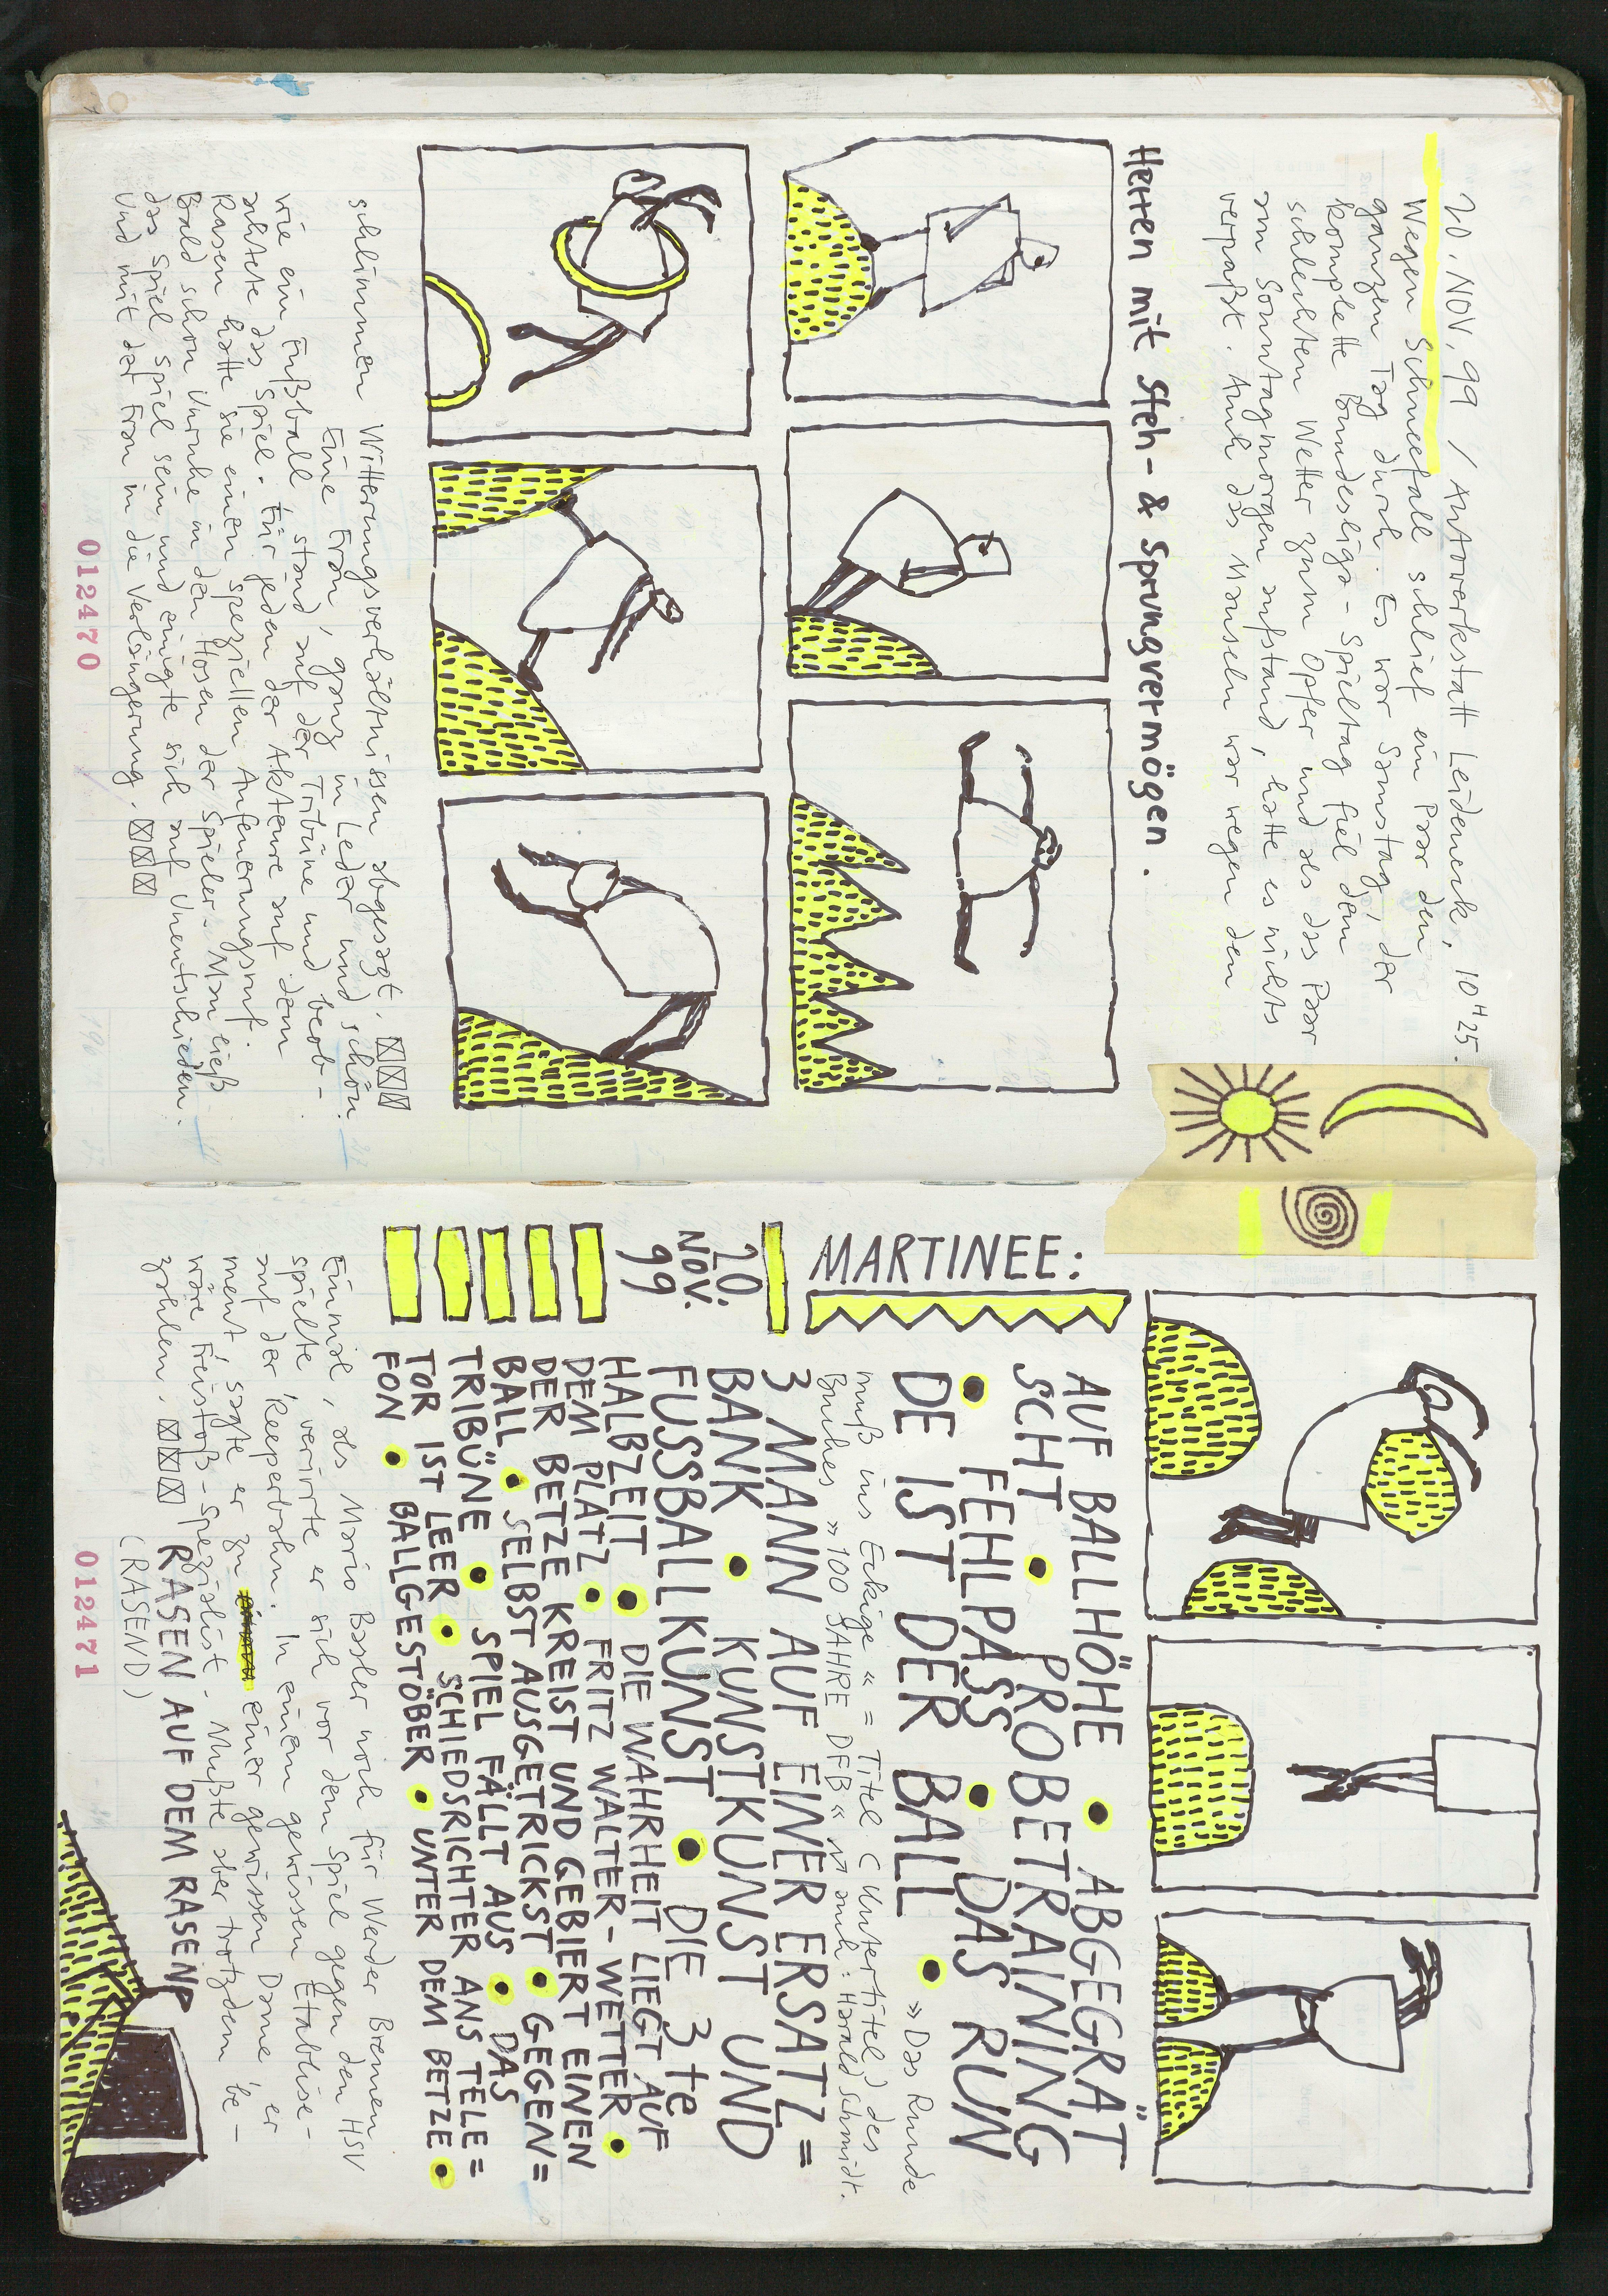 20. NOV. 99 / AUTOWERKSTATT Leideneck, 10H25.
Wegen Schneefall schlief ein Paar den
ganzen Tag durch. Es war Samstag, der
komplette Bundesliga-Spieltag fiel dem
schlechten Wetter zum Opfer und als das Paar
am Sonntagmorgen aufstand, hatte es nichts
verpaßt. Auch das Mauseln war wegen den
Herren mit Steh- & Sprungvermögen.
schlimmen Witterungsverhältnissen abgesagt.
Eine Frau, ganz in Leder und schön
wie ein Fußball, stand auf der Tribüne und beob-
achtete das Spiel. Für jeden der Akteure auf dem
Rasen hatte sie einen speziellen Anfeuerungsruf.
Bald schon Unruhe in den Hosen der Spieler. Man ließ
das Spiel Spiel sein und einigte sich auf Unentschieden.
Und mit der Frau in die Verlängerung.
012470
MARTINEE:
20.
NOV.
99
AUF BALLHÖHE • ABGEGRÄT
SCHT • PROBETRAINING
• FEHLPASS • DAS RUN
DE IST DER BALL • »Das Runde
muß ins Eckige« = Titel (Untertitel) des
Buches »100 JAHRE DFB« von auch: Harald Schmidt.
3 MANN AUF EINER ERSATZ=
BANK • KUNSTKUNST UND
FUSSBALLKUNST • DIE 3te
HALBZEIT • DIE WAHRHEIT LIEGT AUF
DEM PLATZ • FRITZ WALTER-WETTER •
DER BETZE KREIST UND GEBIERT EINEN
BALL • SELBST AUSGETRICKST • GEGEN=
TRIBÜNE • SPIEL FÄLLT AUS • DAS
TOR IST LEER • SCHIEDSRICHTER ANS TELE=
FON • BALLGESTÖBER • UNTER DEM BETZE •
Einmal, als Mario Basler noch für Werder Bremen
spielte, verirrte er sich vor dem Spiel gegen den HSV
auf der 'Reeperbahn. In einem gewissen Etablisse-
ment, sagte er zu einer gewissen Dame, er
wäre Freistoß-Spezialist. Mußte aber trotzdem be-
zahlen. RASEN AUF DEM RASEN?
(RASEND)
012471